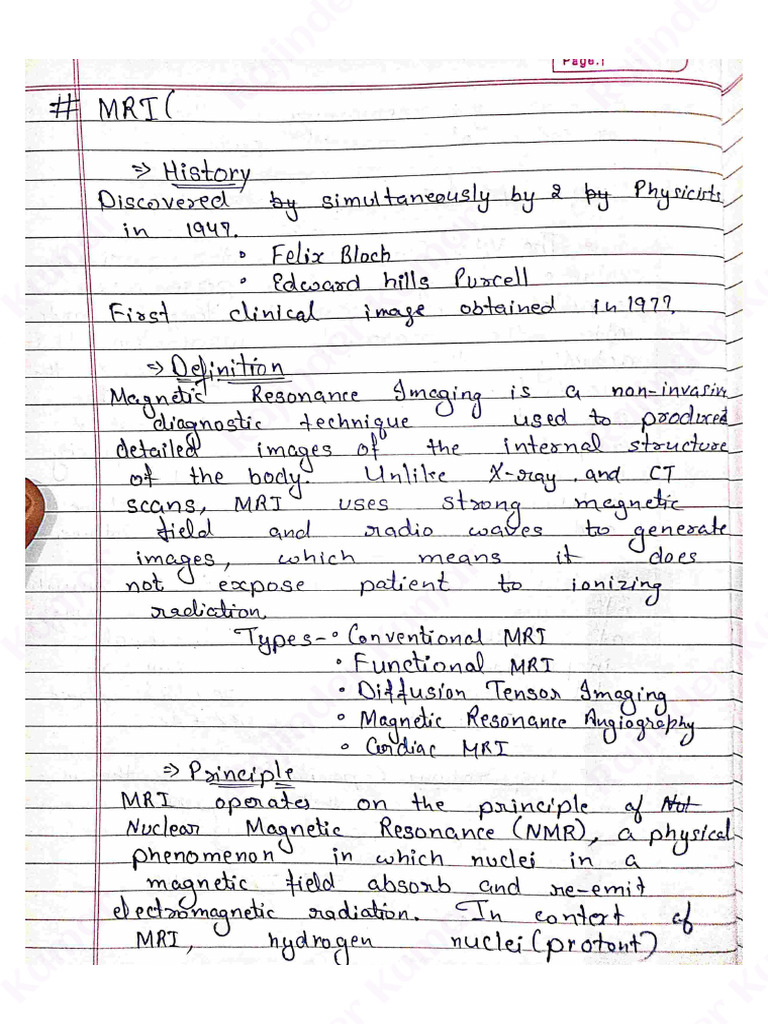 Page.1
# MRI(
⇒ History
Discovered by simultaneously by 2 by Physicists
in 1947.
• Felix Bloch
• Edward hills Purcell
First clinical image obtained in 1977.
⇒ Definition
Magnetic Resonance Imaging is a non-invasive
diagnostic technique used to produced
detailed images of the internal structure
of the body. Unlike X-ray and CT
scans, MRI uses strong megnetic
field and radio waves to generate
images, which means it does
not expose patient to ionizing
radiation.
Types- • Conventional MRI
• Functional MRI
• Diffusion Tensor Imaging
• Magnetic Resonance Angiography
• Cardiac MRI
⇒ Principle
MRI operates on the principle of Not
Nuclear Magnetic Resonance (NMR), a physical
phenomenon in which nuclei in a
magnetic field absorb and re-emit
electromagnetic radiation. In context of
MRI, hydrogen nuclei (protont)